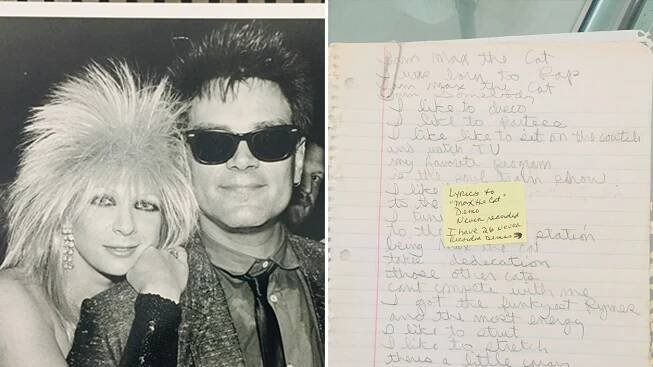 I am Max the Cat
I was born to Rap
I am Max the Cat
I like to disco
I like to
I like like to sit on the couch
and watch TV
my favorite program
is the soul train show.
I like
to the
I tune
to the station
being Max the Cat
take dedication
those other cats
cant compete with me
I got the funkyest Rymes
and the most energy
I like to strut
I like to stretch
theres a little
Lyrics to
"Max the Cat"
Demo
Never recorded
I have 26 Never
Recorded Demos